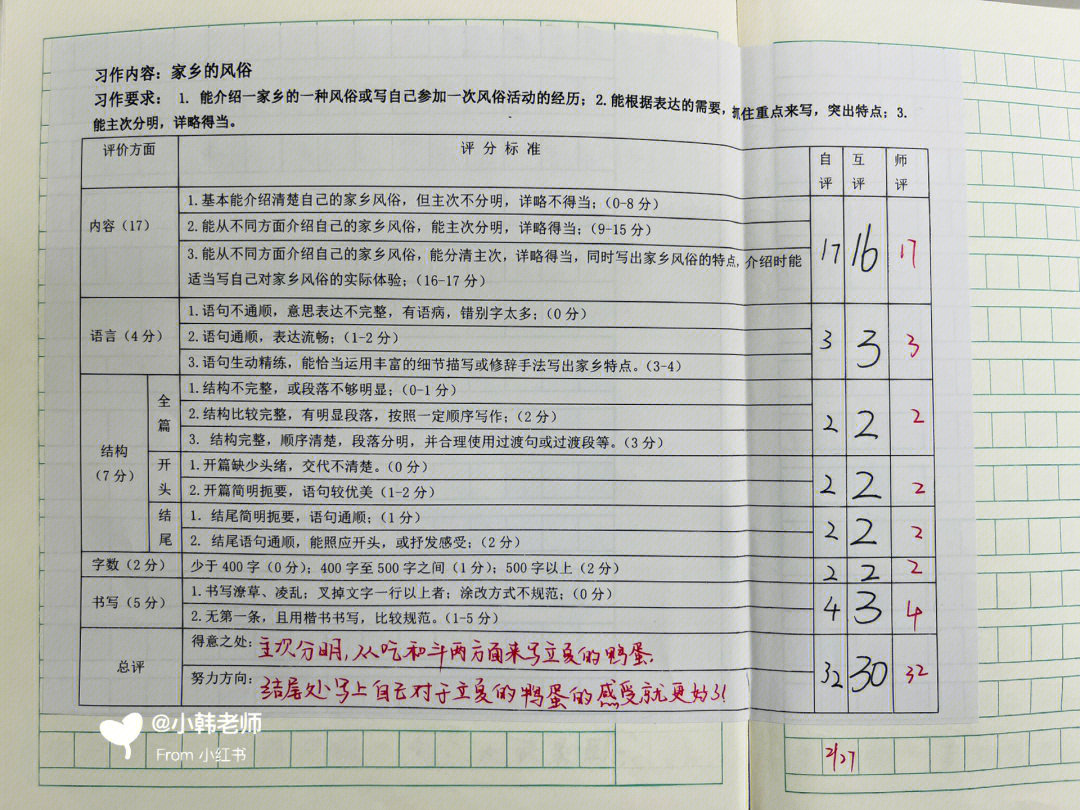 习作内容：家乡的风俗
习作要求： 1. 能介绍一家乡的一种风俗或写自己参加一次风俗活动的经历；2.能根据表达的需要，抓住重点来写，突出特点；3.
能主次分明，详略得当。
评价方面 评 分 标 准 自评 互评 师评
内容（17） 17 16 17
1.基本能介绍清楚自己的家乡风俗，但主次不分明，详略不得当；（0-8 分）
2.能从不同方面介绍自己的家乡风俗，能主次分明，详略得当；（9-15 分）
3.能从不同方面介绍自己的家乡风俗，能分清主次，详略得当，同时写出家乡风俗的特点，介绍时能
适当写自己对家乡风俗的实际体验；（16-17 分）
语言（4 分） 3 3 3
1.语句不通顺，意思表达不完整，有语病，错别字太多；（0 分）
2.语句通顺，表达流畅；（1-2 分）
3.语句生动精练，能恰当运用丰富的细节描写或修辞手法写出家乡特点。（3-4）
结构
（7 分）
全篇 2 2 2
1.结构不完整，或段落不够明显；（0-1 分）
2.结构比较完整，有明显段落，按照一定顺序写作；（2 分）
3. 结构完整，顺序清楚，段落分明，并合理使用过渡句或过渡段等。（3 分）
开头 2 2 2
1.开篇缺少头绪，交代不清楚。（0 分）
2.开篇简明扼要，语句较优美（1-2 分）
结尾 2 2 2
1. 结尾简明扼要，语句通顺；（1 分）
2. 结尾语句通顺，能照应开头，或抒发感受；（2 分）
字数（2 分） 少于 400 字（0 分）；400 字至 500 字之间（1 分）；500 字以上（2 分） 2 2 2
书写（5 分） 4 3 4
1.书写潦草、凌乱；叉掉文字一行以上者；涂改方式不规范；（0 分）
2.无第一条，且用楷书书写，比较规范。（1-5 分）
总评 32 30 32
得意之处：主次分明，从吃和斗两方面来写立夏的鸭蛋.
努力方向：结尾处写上自己对于立夏的鸭蛋的感受就更好了！
@小韩老师
From 小红书
2/27